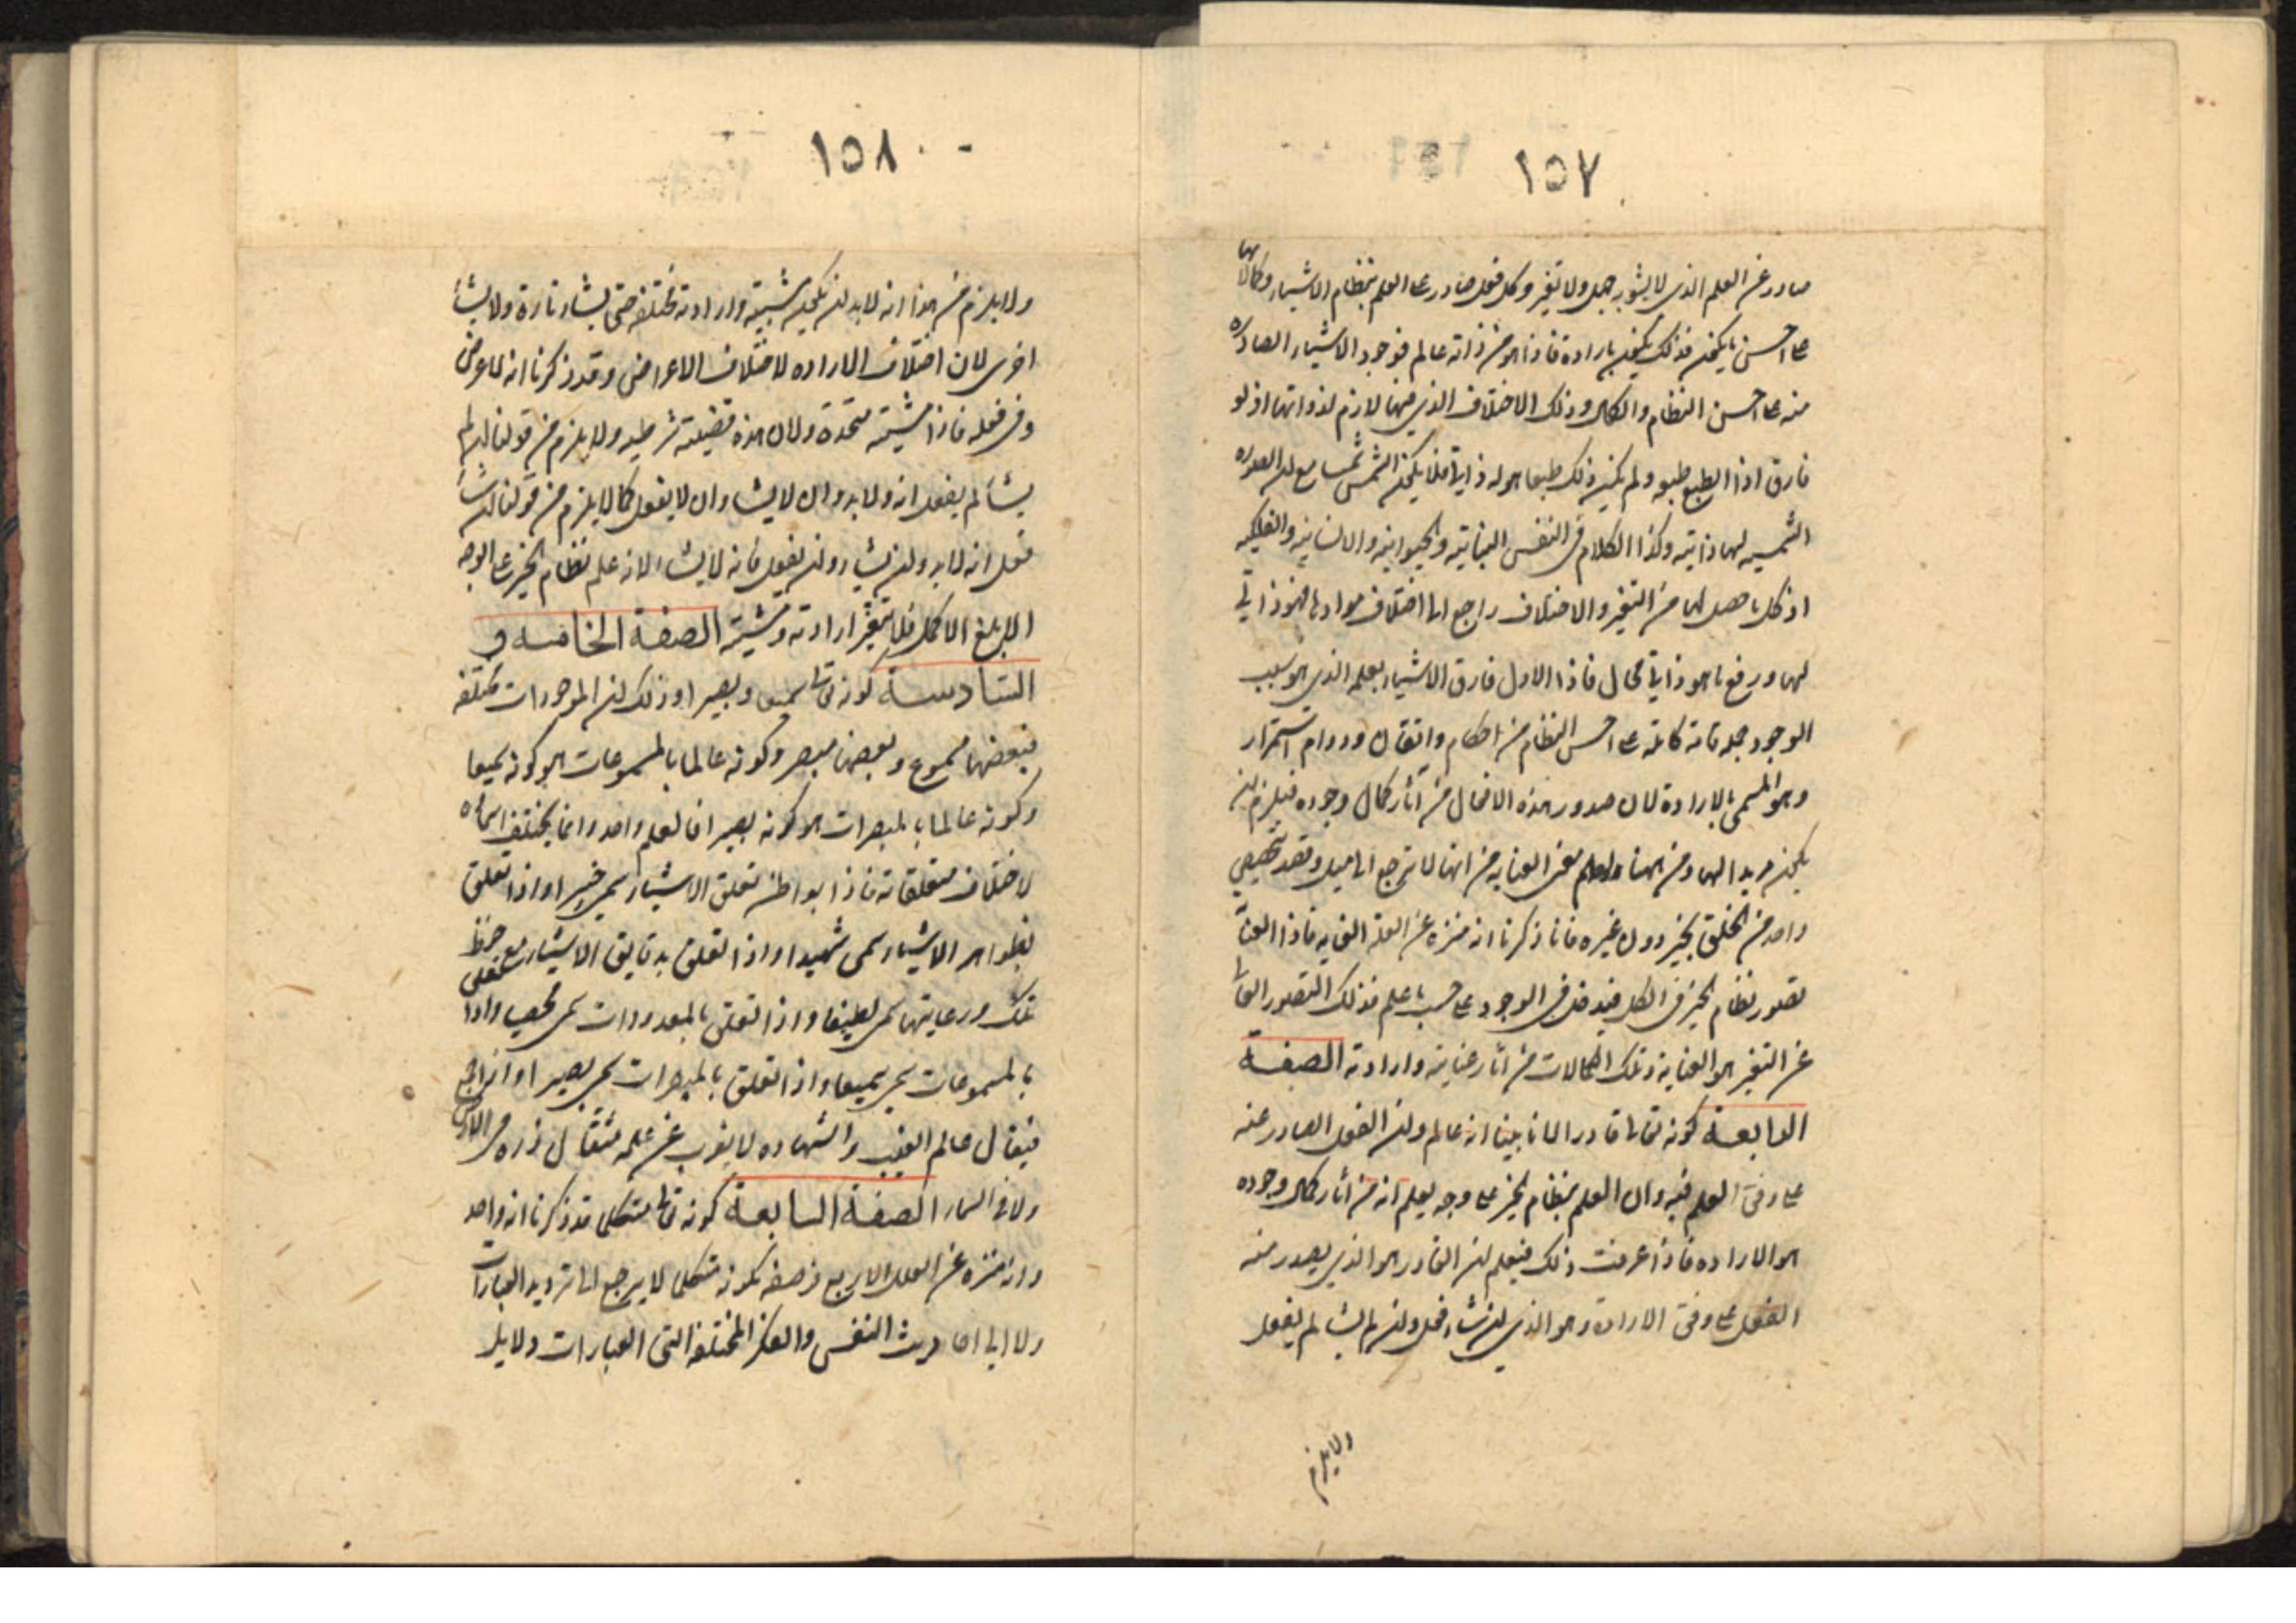 ١٥٧
صادر عن العلم الذي لا يشوبه جهل ولا تغير وكل فعل صادر عن العلم بنظام الاشياء وكمالاتها
على احسن ما يكون فذلك يكون بارادة فاذا هو من ذاته عالم فوجود الاشياء الصادرة
منه على احسن النظام والكمال وذلك الاختلاف الذي فيها لازم لذواتها اذ لو
فارق اذا الطبع طبعه ولم يكن ذلك طبعا هو له ذاتيا فلا يكون الشمس شمسا مع ان الصورة
الشمسيه لها ذاتية وكذا الكلام في النفس النباتية والحيوانية والانسانية والفلكيه
اذ كل ما حصل لها من التغير والاختلاف راجع الى اختلاف موادها فهو ذاتي
لها ورفع ما هو ذاتي محال فاذا الاول فارق الاشياء بعلمه الذي هو سبب
الوجود جملة تامة كاملة على احسن النظام من احكام واتقان ودوام استمرار
وهو المسمى بالارادة لان صدور هذه الافعال من آثار كمال وجوده فيلزم ان
يكون مريدا لها ومن هنا معنى العناية من انها لا ترجع الى ميل وقصد تخصيص
واحد من الخلق بخير دون غيره فانا ذكرنا انه منزه عن العلة الغاية فاذا العناية
تصور نظام الخير في الكل فيدخل في الوجود على حسب ما علم فذلك التصور
عن التغير هو العناية وتلك الكمالات من آثار عنايته وارادته الصفة
الرابعة كونه تعالى قادرا لانا بينا انه عالم وان الفعل الصادر عنه
على وفق العلم فيه وان العلم بنظام الخير على وجه يعلم انه من آثار كمال وجوده
هو الاراده فاذا عرفت ذلك فيعلم ان القادر هو الذي يصدر منه
الفعل على وفق الارادة وهو الذي ان شاء فعل وان لم يشا لم يفعل
ولا يلزم
١٥٨
ولا يلزم من هذا انه لا بد ان يكون مشيته وارادته مختلفة حتى يشاء تارة ولا يشأ
اخرى لان اختلاف الاراده لاختلاف الاعراض وقد ذكرنا انه لا عرض
في فعله فاذا مشيته متحدة ولان هذه قضية شرطيه ولا يلزم من قولنا ان لم
يشأ لم يفعل انه ولا بد وان لا يشاء وان لا يفعل كما لا يلزم من قولنا ان شأ
فعل انه لا بد وان يشاء وان يفعل فانه لا يشاء لانه علم نظام الخير على الوجه
الابلغ الاكمل فلا يتغير ارادته ومشيته الصفة الخامسه و
السادسة كونه تعالى سميعا وبصيرا وذلك ان الموجودات مختلفه
فبعضها مسموع وبعضها مبصر وكونه عالما بالمسموعات هو كونه سميعا
وكونه عالما بالمبصرات هو كونه بصيرا فالعلم واحد وانما يختلف اسماه
لاختلاف متعلقاته فاذا بواطن تعلق الاشياء سمي خبيرا واذا تعلق
بظواهر الاشياء سمى شهيدا واذا تعلق بدقايق الاشياء مع حفظ
تلك ورعايتها سمى لطيفا واذا تعلق بالمعدودات سمى محصيا واذا تعلق
بالمسموعات سمي سميعا واذا تعلق بالمبصرات سمى بصيرا
فيقال عالم الغيب والشهاده لا يعزب عن علمه مثقال ذره في الارض
ولا في السماء الصفة السابعة كونه تعالى متكلما قد ذكرنا انه واحد
وانه منزه عن العلل الاربع فوصفه بكونه متكلما لا يرجع الى ترديد العبارات
ولا الى احاديث النفس والفكر المختلفة التي العبارات دلايل